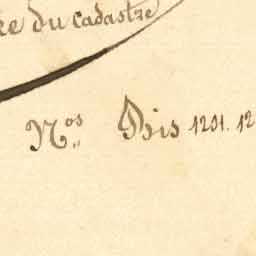 re du Cadastre
Nos Bis 1231. 12